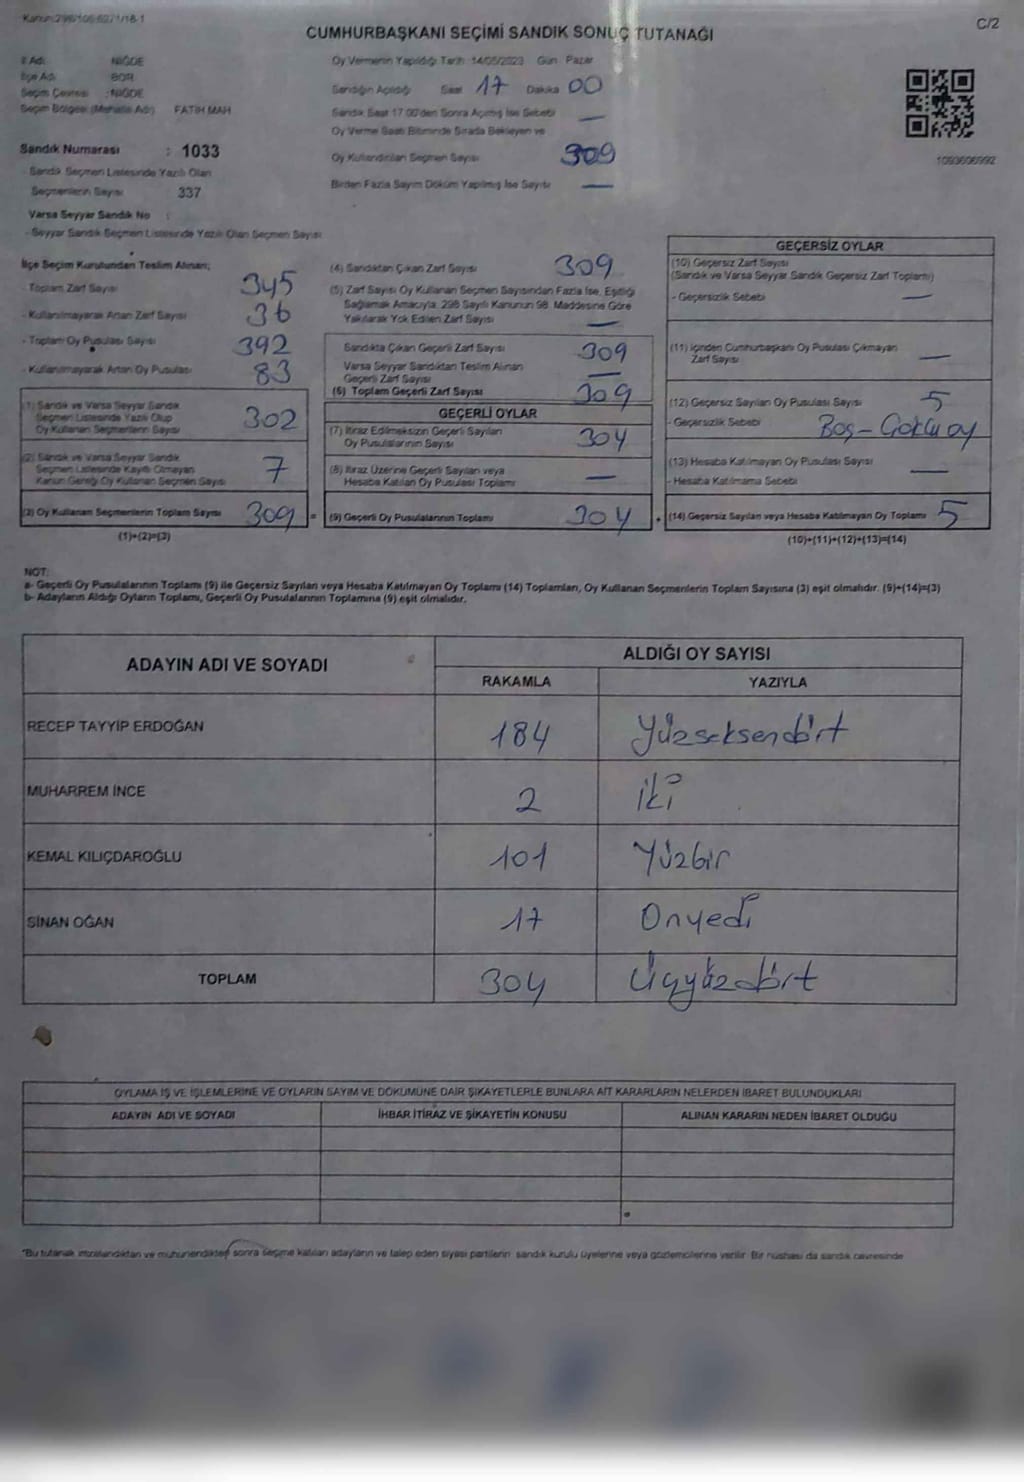 Kanun:298/106 6271/18-1
C/2
CUMHURBAŞKANI SEÇİMİ SANDIK SONUÇ TUTANAĞI
İl Adı NİĞDE
İlçe Adı BOR
Seçim Çevresi :NİĞDE
Seçim Bölgesi (Mahalle Adı) FATİH MAH
Sandık Numarası : 1033
- Sandık Seçmen Listesinde Yazılı Olan
Seçmenlerin Sayısı 337
Varsa Seyyar Sandık No :
- Seyyar Sandık Seçmen Listesinde Yazılı Olan Seçmen Sayısı
Oy Vermenin Yapıldığı Tarih 14/05/2023 Gün Pazar
Sandığın Açıldığı Saat 17 Dakika 00
Sandık Saat 17.00'den Sonra Açılmış İse Sebebi —
Oy Verme Saati Bitiminde Sırada Bekleyen ve
Oy Kullandırılan Seçmen Sayısı 309
Birden Fazla Sayım Döküm Yapılmış İse Sayısı —
1093606992
İlçe Seçim Kurulundan Teslim Alınan;
- Toplam Zarf Sayısı 345
- Kullanılmayarak Artan Zarf Sayısı 36
- Toplam Oy Pusulası Sayısı 392
- Kullanılmayarak Artan Oy Pusulası 83
(1) Sandık ve Varsa Seyyar Sandık
Seçmen Listesinde Yazılı Olup
Oy Kullanan Seçmenlerin Sayısı 302
(2) Sandık ve Varsa Seyyar Sandık
Seçmen Listesinde Kayıtlı Olmayan
Kanun Gereği Oy Kullanan Seçmen Sayısı 7
(3) Oy Kullanan Seçmenlerin Toplam Sayısı 309 =
(1)+(2)=(3)
(4) Sandıktan Çıkan Zarf Sayısı 309
(5) Zarf Sayısı Oy Kullanan Seçmen Sayısından Fazla İse, Eşitliği
Sağlamak Amacıyla, 298 Sayılı Kanunun 98. Maddesine Göre
Yakılarak Yok Edilen Zarf Sayısı —
Sandıkta Çıkan Geçerli Zarf Sayısı 309
Varsa Seyyar Sandıktan Teslim Alınan
Geçerli Zarf Sayısı —
(6) Toplam Geçerli Zarf Sayısı 309
GEÇERLİ OYLAR
(7) İtiraz Edilmeksizin Geçerli Sayılan
Oy Pusulalarının Sayısı 304
(8) İtiraz Üzerine Geçerli Sayılan veya
Hesaba Katılan Oy Pusulası Toplamı —
(9) Geçerli Oy Pusulalarının Toplamı 304 +
GEÇERSİZ OYLAR
(10) Geçersiz Zarf Sayısı
(Sandık ve Varsa Seyyar Sandık Geçersiz Zarf Toplamı)
- Geçersizlik Sebebi —
(11) İçinden Cumhurbaşkanı Oy Pusulası Çıkmayan
Zarf Sayısı —
(12) Geçersiz Sayılan Oy Pusulası Sayısı 5
- Geçersizlik Sebebi Boş –
(13) Hesaba Katılmayan Oy Pusulası Sayısı —
- Hesaba Katılmama Sebebi
(14) Geçersiz Sayılan veya Hesaba Katılmayan Oy Toplamı 5
(10)+(11)+(12)+(13)=(14)
NOT:
a- Geçerli Oy Pusulalarının Toplamı (9) ile Geçersiz Sayılan veya Hesaba Katılmayan Oy Toplamı (14) Toplamları, Oy Kullanan Seçmenlerin Toplam Sayısına (3) eşit olmalıdır. (9)+(14)=(3)
b- Adayların Aldığı Oyların Toplamı, Geçerli Oy Pusulalarının Toplamına (9) eşit olmalıdır.
ADAYIN ADI VE SOYADI ALDIĞI OY SAYISI
RAKAMLA YAZIYLA
RECEP TAYYİP ERDOĞAN 184 Yüzseksendört
MUHARREM İNCE 2 iki
KEMAL KILIÇDAROĞLU 101 Yüzbir
SİNAN OĞAN 17 Onyedi
TOPLAM 304 Üçyüzdört
OYLAMA İŞ VE İŞLEMLERİNE VE OYLARIN SAYIM VE DÖKÜMÜNE DAİR ŞİKAYETLERLE BUNLARA AİT KARARLARIN NELERDEN İBARET BULUNDUKLARI
ADAYIN ADI VE SOYADI İHBAR İTİRAZ VE ŞİKAYETİN KONUSU ALINAN KARARIN NEDEN İBARET OLDUĞU
*Bu tutanak imzalandıktan ve mühürlendikten sonra seçime katılan adayların ve talep eden siyasi partilerin sandık kurulu üyelerine veya gözlemcilerine verilir. Bir nüshası da sandık çevresinde